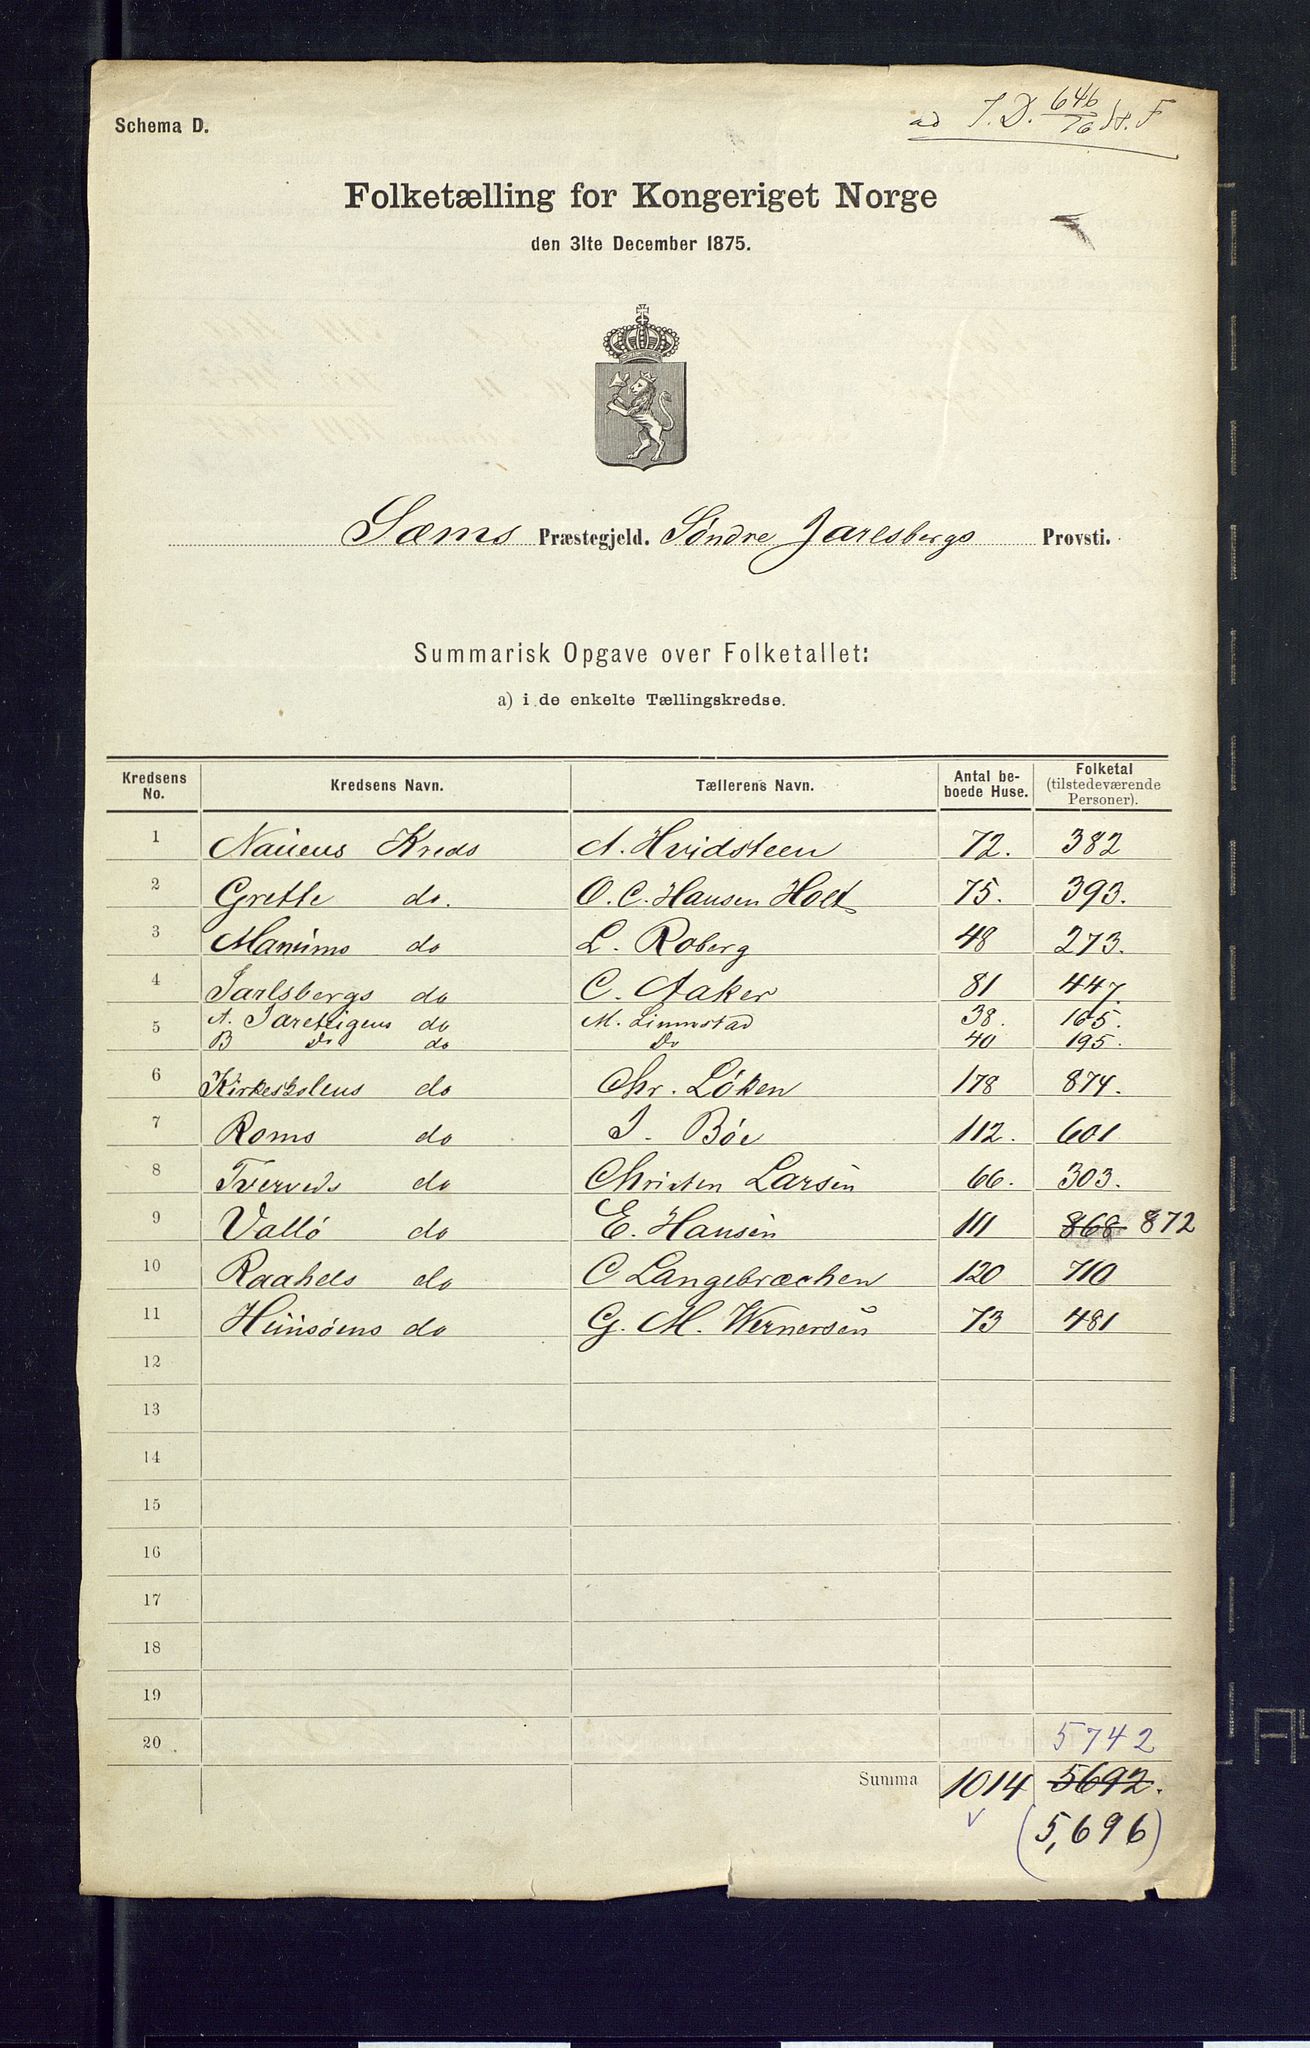 Schema D.
ad J.D. 646/76 St. F
Folketælling for Kongeriget Norge
den 31te December 1875.
Sæms Præstegjeld. Søndre Jarlsbergs Provsti.
Summarisk Opgave over Folketallet:
a) i de enkelte Tællingskredse.
Kredsens No. Kredsens Navn. Tællerens Navn. Antal beboede Huse. Folketal (tilstedeværende Personer).
1 Nauens Kreds A. Hvidsteen 72. 382
2 Grette do. O. C. Hansen Holt 75. 393.
3 do L. Roberg 48 273.
4 Jarlsbergs do C. Aaker 81 447.
5 A. Jareteigens do M. Linnestad 38. 165.
B Do do Do 40 195.
6 Kirkeskolens do Chr. Løken 178 874.
7 Roms do J. Bøe 112. 601
8 Tverveds do Christen Larsen 66. 303.
9 Vallø do E. Hansen 111 868 872
10 Raahels do C Langebræchen 120 710
11 Husøens do G. M. Wernersen 73 481
12
13
14
15
16
17
18
19
20 5742
Summa 1014 5692.
(5,696)